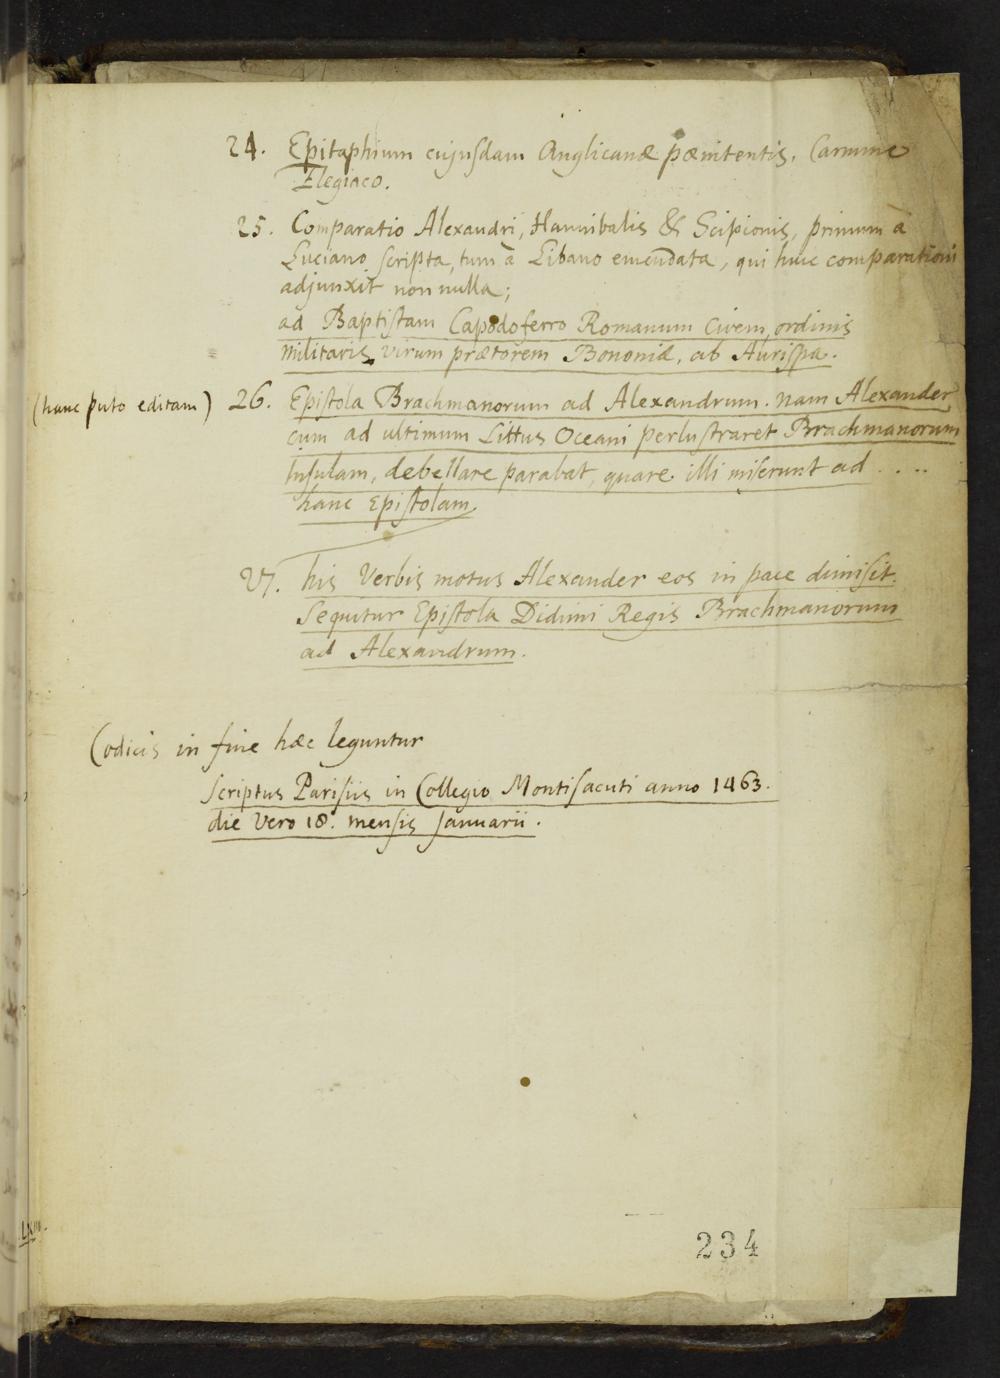 24. Epitaphium cujusdam Anglicanæ pænitentis, Carmine
Elegiaco.
25. Comparatio Alexandri, Hannibalis & Scipionis, primum à
Luciano scripta, tum à Libano emendata, qui huic comparationi
adjunxit non nulla;
ad Baptistam Capodoferro Romanum Civem, ordinis
militaris virum prætorem Bononiæ, ab Aurispa.
(hanc puto editam) 26. Epistola Brachmanorum ad Alexandrum. nam Alexander
cum ad ultimum Littus Oceani perlustraret Brachmanorum
Insulam, debellare parabat, quare illi miserunt ad ....
hanc Epistolam.
27. his Verbis motus Alexander eos in pace dimisit.
Sequitur Epistola Didimi Regis Brachmanorum
ad Alexandrum.
Codicis in fine hæc leguntur
Scriptus Parisiis in Collegio Montisacuti anno 1463.
die Vero 18. mensis Januarii.
234